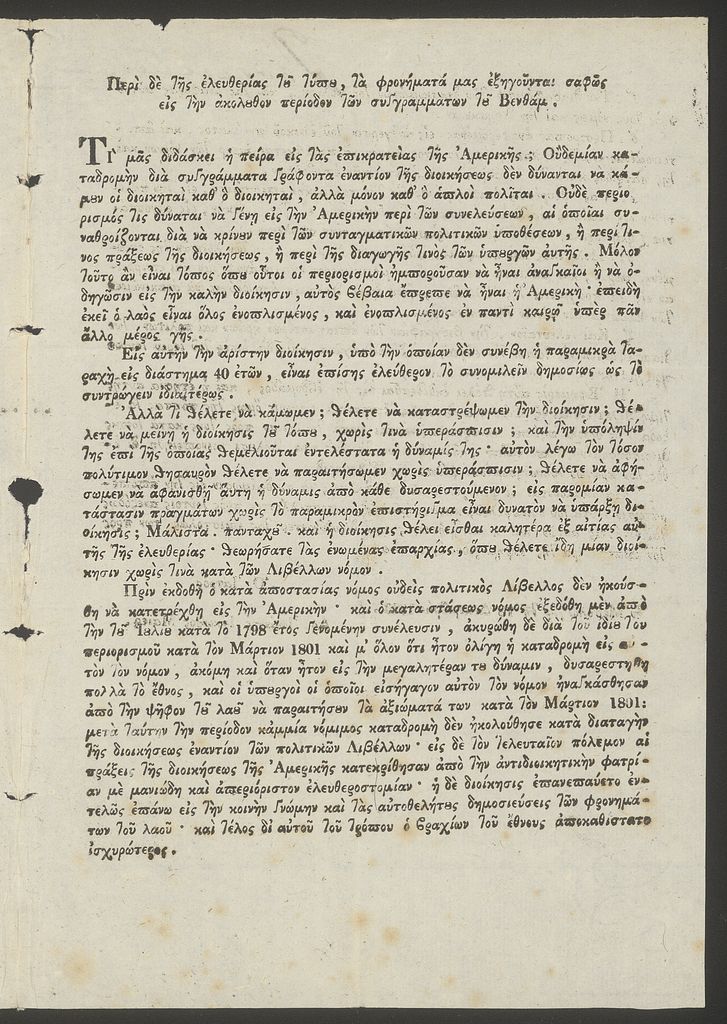 Περὶ δὲ τῆς ἐλευθερίας τȣ͂ τύπȣ, τὰ φρονήματά μας ἐξηγοῦνται σαφῶς
εἰς τὴν ἀκόλȣθον περίοδον τῶν συγγραμμάτων τȣ͂ Βενθάμ.
Τί μᾶς διδάσκει ἡ πείρα εἰς τὰς ἐπικρατείας τῆς Ἀμερικῆς; Οὐδεμίαν κα-
ταδρομὴν διὰ συγγράμματα γράφοντα ἐναντίον τῆς διοικήσεως δὲν δύνανται νὰ κά-
μȣν οἱ διοικηταὶ καθ' ὃ διοικηταὶ, ἀλλὰ μόνον καθ' ὃ ἁπλοὶ πολῖται. Οὐδὲ περιο-
ρισμός τις δύναται νὰ γένῃ εἰς τὴν Ἀμερικὴν περὶ τῶν συνελεύσεων, αἱ ὁποῖαι συ-
ναθροίζονται διὰ νὰ κρίνȣν περὶ τῶν συνταγματικῶν πολιτικῶν ὑποθέσεων, ἢ περὶ τι-
νος πράξεως τῆς διοικήσεως, ἢ περὶ τῆς διαγωγῆς τινὸς τῶν ὑπȣργῶν αὐτῆς. Μόλον
τοῦτο ἂν εἶναι τόπος ὅπȣ οὗτοι οἱ περιορισμοὶ ἠμποροῦσαν νὰ ἦναι ἀναγκαῖοι ἢ νὰ ὁ-
δηγῶσιν εἰς τὴν καλὴν διοίκησιν, αὐτὸς βέβαια ἔπρεπε νὰ ἦναι ἡ Ἀμερικὴ· ἐπειδὴ
ἐκεῖ ὁ λαὸς εἶναι ὅλος ἐνοπλισμένος, καὶ ἐνοπλισμένος ἐν παντὶ καιρῷ ὑπὲρ πᾶν
ἄλλο μέρος γῆς.
Εἰς αὐτὴν τὴν ἀρίστην διοίκησιν, ὑπὸ τὴν ὁποίαν δὲν συνέβη ἡ παραμικρὰ τα-
ραχὴ εἰς διάστημα 40 ἐτῶν, εἶναι ἐπίσης ἐλεύθερον τὸ συνομιλεῖν δημοσίως ὡς τὸ
συντρώγειν ἰδιαιτέρως.
Ἀλλὰ τί θέλετε νὰ κάμωμεν; θέλετε νὰ καταστρέψωμεν τὴν διοίκησιν; θέ-
λετε νὰ μείνῃ ἡ διοίκησις τȣ͂ τόπȣ, χωρὶς τινὰ ὑπεράσπισιν; καὶ τὴν ὑπόληψίν
της ἐπὶ τῆς ὁποίας θεμελιοῦται ἐντελέστατα ἡ δύναμίς της· αὐτὸν λέγω τὸν τόσον
πολύτιμον θησαυρὸν θέλετε νὰ παραιτήσωμεν χωρὶς ὑπεράσπισιν; θέλετε νὰ ἀφή-
σωμεν νὰ ἀφανισθῇ αὕτη ἡ δύναμις ἀπὸ κάθε δυσαρεστούμενον; εἰς παρομίαν κα-
τάστασιν πραγμάτων χωρὶς τὸ παραμικρὸν ἐπιστήριγμα εἶναι δυνατὸν νὰ ὑπάρξῃ δι-
οίκησις; Μάλιστα. πανταχȣ͂. καὶ ἡ διοίκησις θέλει εἶσθαι καλητέρα ἐξ αἰτίας αὐ-
τῆς τῆς ἐλευθερίας· θεωρήσατε τὰς ἑνωμένας ἐπαρχίας, ὅπȣ θέλετε ἰδῆ μίαν διοί-
κησιν χωρὶς τινὰ κατὰ τῶν Λιβέλλων νόμον.
Πρὶν ἐκδοθῇ ὁ κατὰ ἀποστασίας νόμος οὐδεὶς πολιτικὸς Λίβελλος δὲν ἠκούσ-
θη νὰ κατετρέχθη εἰς τὴν Ἀμερικὴν· καὶ ὁ κατὰ στάσεως νόμος ἐξεδόθη μὲν ἀπὸ
τὴν τȣ͂ Ἰȣλίȣ κατὰ τὸ 1798 ἔτος γενομένην συνέλευσιν, ἀκυρώθη δὲ διὰ τοῦ ἰδίȣ τȣ
περιορισμοῦ κατὰ τὸν Μάρτιον 1801 καὶ μ' ὅλον ὅτι ἦτον ὀλίγη ἡ καταδρομὴ εἰς αὐ-
τὸν τὸν νόμον, ἀκόμη καὶ ὅταν ἦτον εἰς τὴν μεγαλητέραν τȣ δύναμιν, δυσαρεστήθη
πολλὰ τὸ ἔθνος, καὶ οἱ ὑπȣργοὶ οἱ ὁποῖοι εἰσήγαγον αὐτὸν τὸν νόμον ἠναγκάσθησαν
ἀπὸ τὴν ψῆφον τȣ͂ λαȣ͂ νὰ παραιτήσȣν τὰ ἀξιώματά των κατὰ τὸν Μάρτιον 1801:
μετὰ ταύτην τὴν περίοδον κᾀμμία νόμιμος καταδρομὴ δὲν ἠκολούθησε κατὰ διαταγὴν
τῆς διοικήσεως ἐναντίον τῶν πολιτικῶν Λιβέλλων· εἰς δὲ τὸν τελευταῖον πόλεμον αἱ
πράξεις τῆς διοικήσεως τῆς Ἀμερικῆς κατεκρίθησαν ἀπὸ τὴν ἀντιδιοικητικὴν φατρί-
αν μὲ μανιώδη καὶ ἀπεριόριστον ἐλευθεροστομίαν· ἡ δὲ διοίκησις ἐπανεπαύετο ἐν-
τελῶς ἐπάνω εἰς τὴν κοινὴν γνώμην καὶ τὰς αὐτοθελήτȣς δημοσιεύσεις τῶν φρονημά-
των τοῦ λαοῦ· καὶ τέλος δι' αὐτοῦ τοῦ τρόπου ὁ βραχίων τοῦ ἔθνους ἀποκαθίστατο
ἰσχυρώτερος.